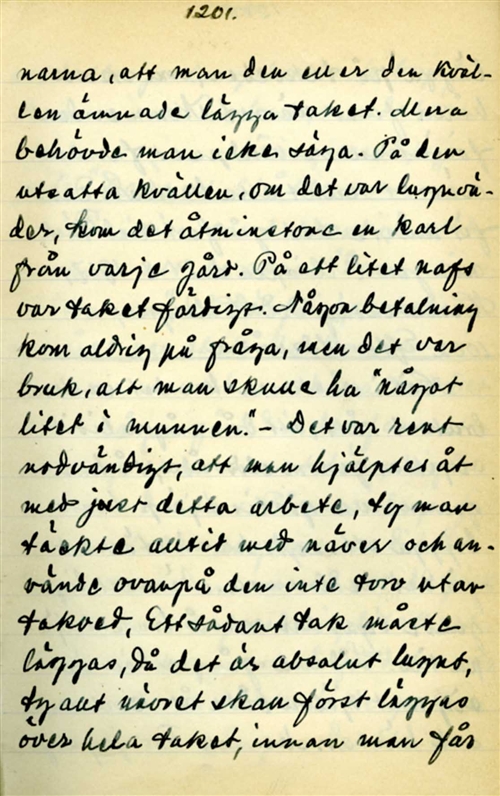 1201.
narna, att man den eller den kväl-
len ämnade lägga taket. Mera
behövde man icke säga. På den
utsatta kvällen, om det var lugnvä-
der, kom det åtminstone en karl
från varje gård. På ett litet nafs
var taket färdigt. Någon betalning
kom aldrig på fråga, men det var
bruk, att man skulle ha "något
litet i munnen." - Det var rent
nödvändigt, att man hjälptes åt
med just detta arbete, ty man
täckte alltid med näver och an-
vände ovanpå den inte torv utan
takved. Ett sådant tak måste
läggas, då det är absolut lugnt,
ty allt nävret skall först läggas
över hela taket, innan man får